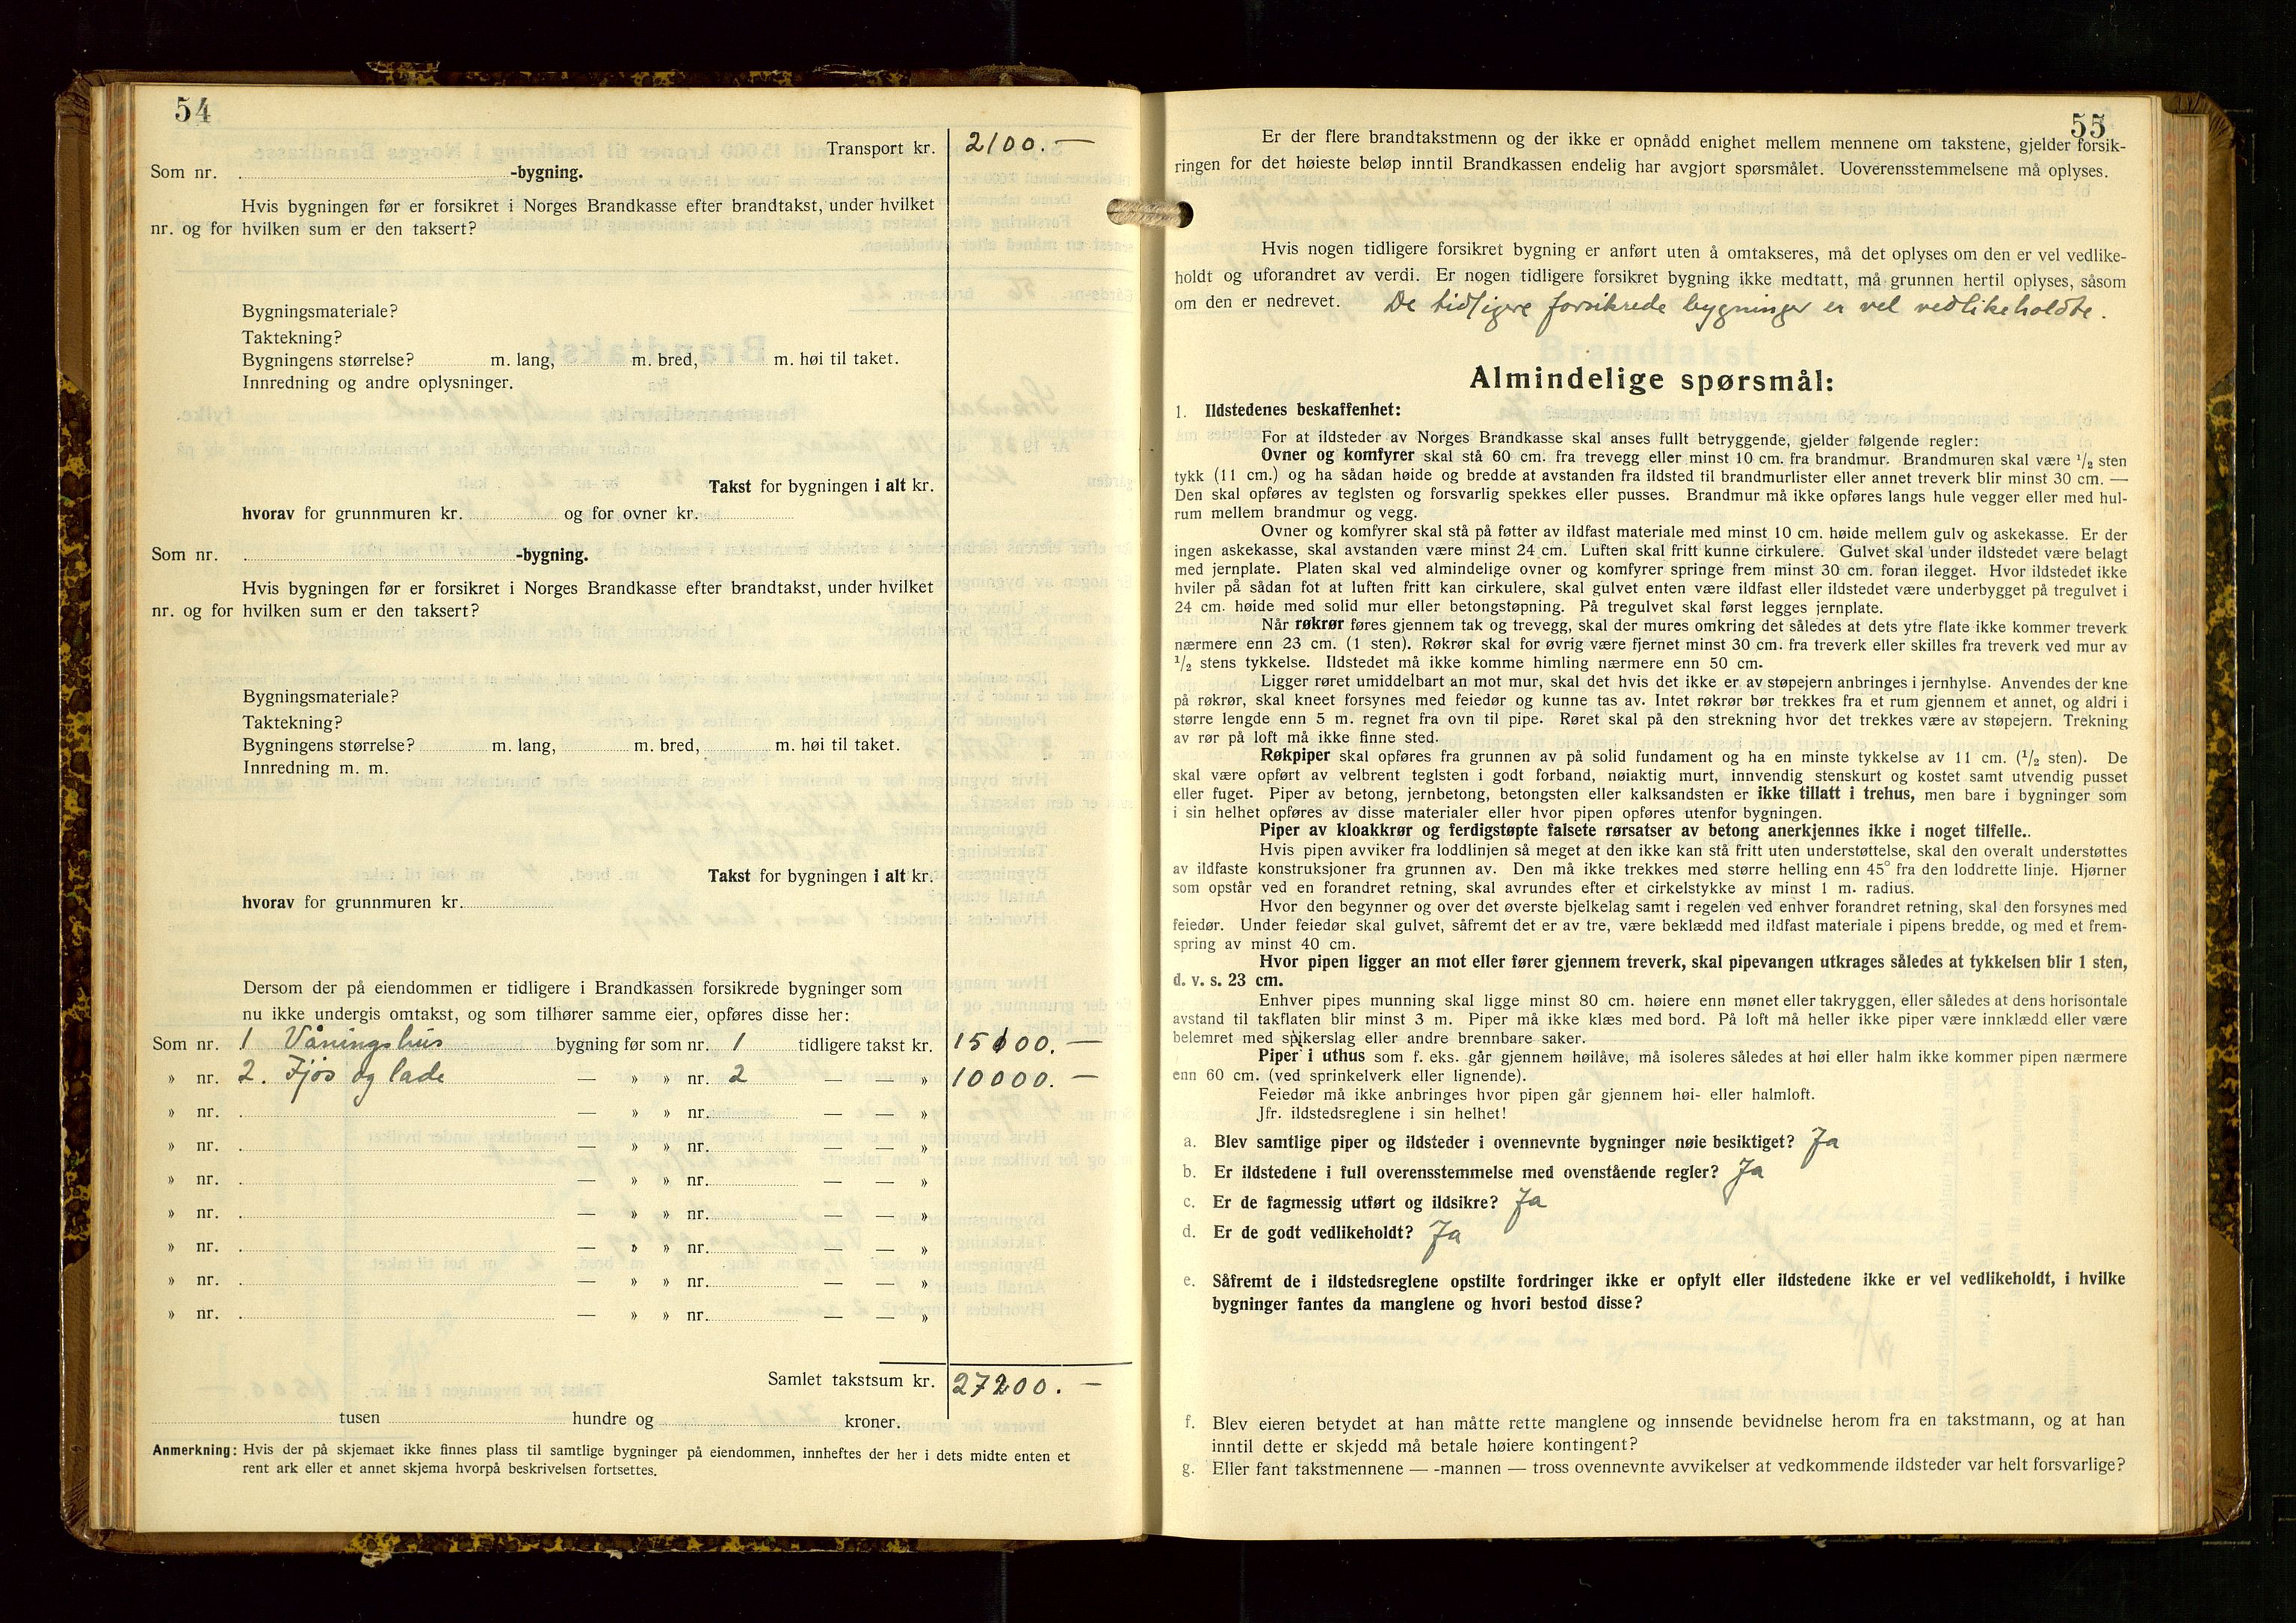 54
Transport kr. 2100. —
Som nr. -bygning.
Hvis bygningen før er forsikret i Norges Brandkasse efter brandtakst, under hvilket
nr. og for hvilken sum er den taksert?
Bygningsmateriale?
Taktekning?
Bygningens størrelse? m. lang, m. bred, m. høi til taket.
Innredning og andre oplysninger.
Takst for bygningen i alt kr.
hvorav for grunnmuren kr. og for ovner kr.
Som nr. -bygning.
Hvis bygningen før er forsikret i Norges Brandkasse efter brandtakst, under hvilket
nr. og for hvilken sum er den taksert?
Bygningsmateriale?
Taktekning?
Bygningens størrelse? m. lang, m. bred, m. høi til taket.
Innredning m. m.
Takst for bygningen i alt kr.
hvorav for grunnmuren kr.
Dersom der på eiendommen er tidligere i Brandkassen forsikrede bygninger som
nu ikke undergis omtakst, og som tilhører samme eier, opføres disse her:
Som nr. 1 Våningshus bygning før som nr. 1 tidligere takst kr. 15100. —
» nr. 2. Fjøs og lade — » » nr. 2 — — » 10000. —
» nr. — » » nr. — — »
» nr. — » » nr. — — »
» nr. — » » nr. — — »
» nr. — » » nr. — — »
» nr. — » » nr. — — »
» nr. — » » nr. — — »
» nr. — » » nr. — — »
Samlet takstsum kr. 27200. —
tusen hundre og kroner.
Anmerkning: Hvis der på skjemaet ikke finnes plass til samtlige bygninger på eiendommen, innheftes der her i dets midte enten et
rent ark eller et annet skjema hvorpå beskrivelsen fortsettes.
55
Er der flere brandtakstmenn og der ikke er opnådd enighet mellem mennene om takstene, gjelder forsik-
ringen for det høieste beløp inntil Brandkassen endelig har avgjort spørsmålet. Uoverensstemmelsene må oplyses.
Hvis nogen tidligere forsikret bygning er anført uten å omtakseres, må det oplyses om den er vel vedlike-
holdt og uforandret av verdi. Er nogen tidligere forsikret bygning ikke medtatt, må grunnen hertil oplyses, såsom
om den er nedrevet. De tidligere forsikrede bygninger er vel vedlikeholdte.
Almindelige spørsmål:
1. Ildstedenes beskaffenhet:
For at ildsteder av Norges Brandkasse skal anses fullt betryggende, gjelder følgende regler:
Ovner og komfyrer skal stå 60 cm. fra trevegg eller minst 10 cm. fra brandmur. Brandmuren skal være 1/2 sten
tykk (11 cm.) og ha sådan høide og bredde at avstanden fra ildsted til brandmurlister eller annet treverk blir minst 30 cm. —
Den skal opføres av teglsten og forsvarlig spekkes eller pusses. Brandmur må ikke opføres langs hule vegger eller med hul-
rum mellem brandmur og vegg.
Ovner og komfyrer skal stå på føtter av ildfast materiale med minst 10 cm. høide mellem gulv og askekasse. Er der
ingen askekasse, skal avstanden være minst 24 cm. Luften skal fritt kunne cirkulere. Gulvet skal under ildstedet være belagt
med jernplate. Platen skal ved almindelige ovner og komfyrer springe frem minst 30 cm. foran ilegget. Hvor ildstedet ikke
hviler på sådan fot at luften fritt kan cirkulere, skal gulvet enten være ildfast eller ildstedet være underbygget på tregulvet i
24 cm. høide med solid mur eller betongstøpning. På tregulvet skal først legges jernplate.
Når røkrør føres gjennem tak og trevegg, skal der mures omkring det således at dets ytre flate ikke kommer treverk
nærmere enn 23 cm. (1 sten). Røkrør skal for øvrig være fjernet minst 30 cm. fra treverk eller skilles fra treverk ved mur av
1/2 stens tykkelse. Ildstedet må ikke komme himling nærmere enn 50 cm.
Ligger røret umiddelbart an mot mur, skal det hvis det ikke er av støpejern anbringes i jernhylse. Anvendes der kne
på røkrør, skal kneet forsynes med feiedør og kunne tas av. Intet røkrør bør trekkes fra et rum gjennem et annet, og aldri i
større lengde enn 5 m. regnet fra ovn til pipe. Røret skal på den strekning hvor det trekkes være av støpejern. Trekning
av rør på loft må ikke finne sted.
Røkpiper skal opføres fra grunnen av på solid fundament og ha en minste tykkelse av 11 cm. (1/2 sten). De
skal være opført av velbrent teglsten i godt forband, nøiaktig murt, innvendig stenskurt og kostet samt utvendig pusset
eller fuget. Piper av betong, jernbetong, betongsten eller kalksandsten er ikke tillatt i trehus, men bare i bygninger som
i sin helhet opføres av disse materialer eller hvor pipen opføres utenfor bygningen.
Piper av kloakkrør og ferdigstøpte falsete rørsatser av betong anerkjennes ikke i noget tilfelle..
Hvis pipen avviker fra loddlinjen så meget at den ikke kan stå fritt uten understøttelse, skal den overalt understøttes
av ildfaste konstruksjoner fra grunnen av. Den må ikke trekkes med større helling enn 45° fra den loddrette linje. Hjørner
som opstår ved en forandret retning, skal avrundes efter et cirkelstykke av minst 1 m. radius.
Hvor den begynner og over det øverste bjelkelag samt i regelen ved enhver forandret retning, skal den forsynes med
feiedør. Under feiedør skal gulvet, såfremt det er av tre, være beklædd med ildfast materiale i pipens bredde, og med et frem-
spring av minst 40 cm.
Hvor pipen ligger an mot eller fører gjennem treverk, skal pipevangen utkrages således at tykkelsen blir 1 sten,
d. v. s. 23 cm.
Enhver pipes munning skal ligge minst 80 cm. høiere enn mønet eller takryggen, eller således at dens horisontale
avstand til takflaten blir minst 3 m. Piper må ikke klæs med bord. På loft må heller ikke piper være innklædd eller være
belemret med spikerslag eller andre brennbare saker.
Piper i uthus som f. eks. går gjennem høilåve, må isoleres således at høi eller halm ikke kommer pipen nærmere
enn 60 cm. (ved sprinkelverk eller lignende).
Feiedør må ikke anbringes hvor pipen går gjennem høi- eller halmloft.
Jfr. ildstedsreglene i sin helhet!
a. Blev samtlige piper og ildsteder i ovennevnte bygninger nøie besiktiget? Ja
b. Er ildstedene i full overensstemmelse med ovenstående regler? Ja
c. Er de fagmessig utført og ildsikre? Ja
d. Er de godt vedlikeholdt? Ja
e. Såfremt de i ildstedsreglene opstilte fordringer ikke er opfylt eller ildstedene ikke er vel vedlikeholdt, i hvilke
bygninger fantes da manglene og hvori bestod disse?
f. Blev eieren betydet at han måtte rette manglene og innsende bevidnelse herom fra en takstmann, og at han
inntil dette er skjedd må betale høiere kontingent?
g. Eller fant takstmennene — -mannen — tross ovennevnte avvikelser at vedkommende ildsteder var helt forsvarlige?